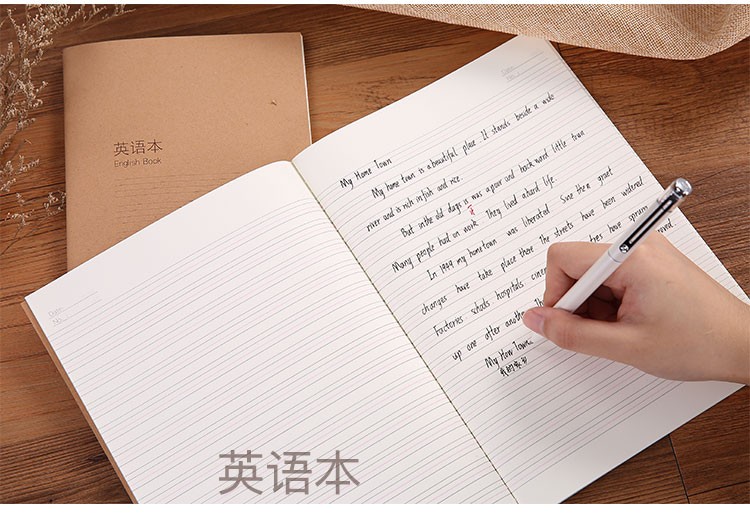 英语本
English Book
My Home Town
My home town is a beautiful place. It stands beside a wide
river and is rich in fish and rice.
But in the old days is was a poor and back ward little town
it
Many people had on work. They lived ahard life.
In 1949 my hometown was liberated. Sine then great
changes have take place there The streets have been widened.
Factories. schools hospitals cinem trees have sprung
up one after another. Th ound.
My How Town.
我的家乡
Date:
No.:
英语本